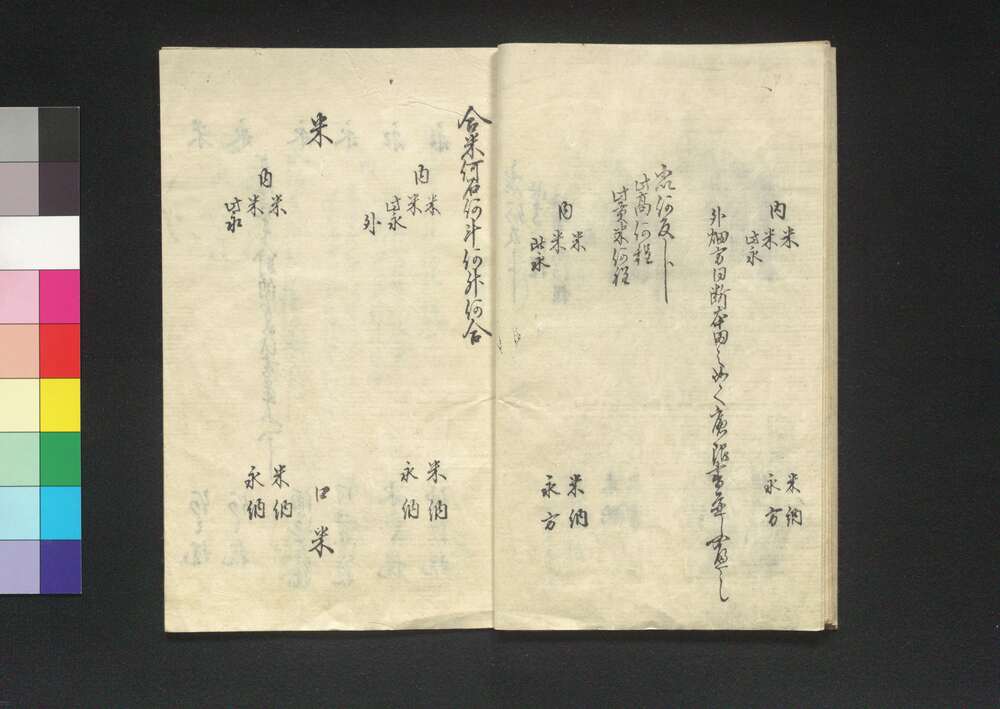 内 米 米納
米
此永 永方
外畑方同断本田之如く
何反
此高何程
此貢米何程
内 米 米納
米
此永 永方
合米何石何斗何升何合
内 米 米納
米
此永 永納
外
米 口米
内 米 米納
米
此永 永納